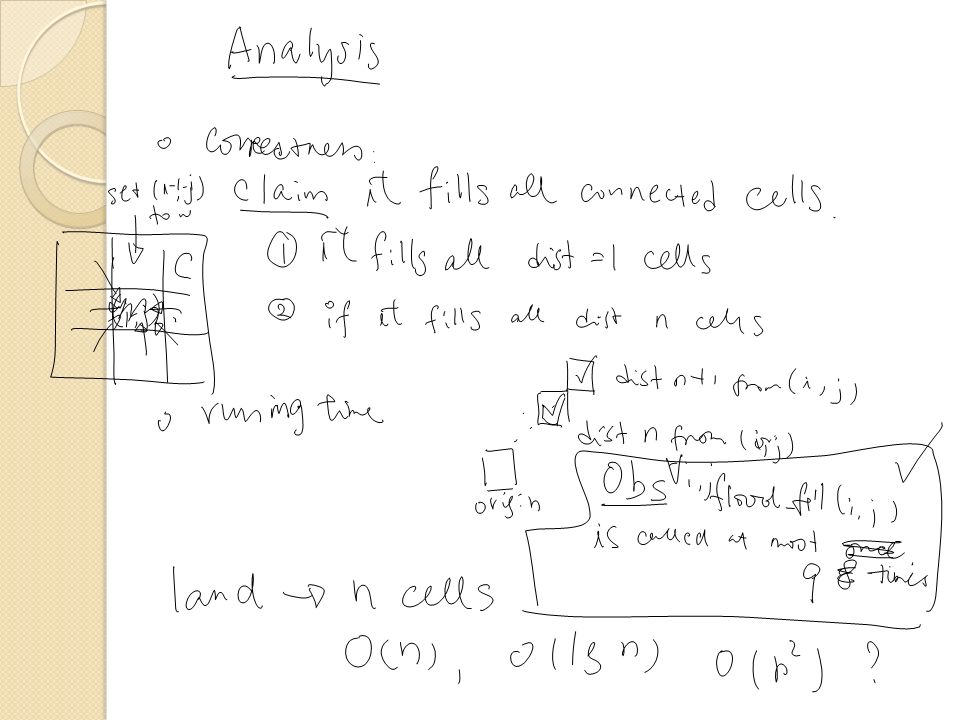 Analysis
o Correctness:
set (i-1, j) to w
C
claim it fills all connected cells.
① it fills all dist = 1 cells
② if it fills all dist n cells
dist n+1 from (i, j)
dist n from (i, j)
origin
o running time
Obs ∀ i, j flood_fill (i, j)
is called at most
9 times
land → n cells
O(n), O(lg n) O(n²) ?